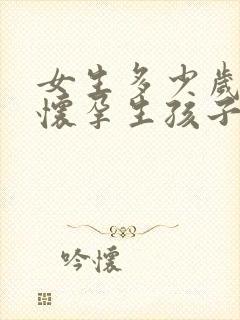 女生多少歲
懷孕生孩子
吟懷